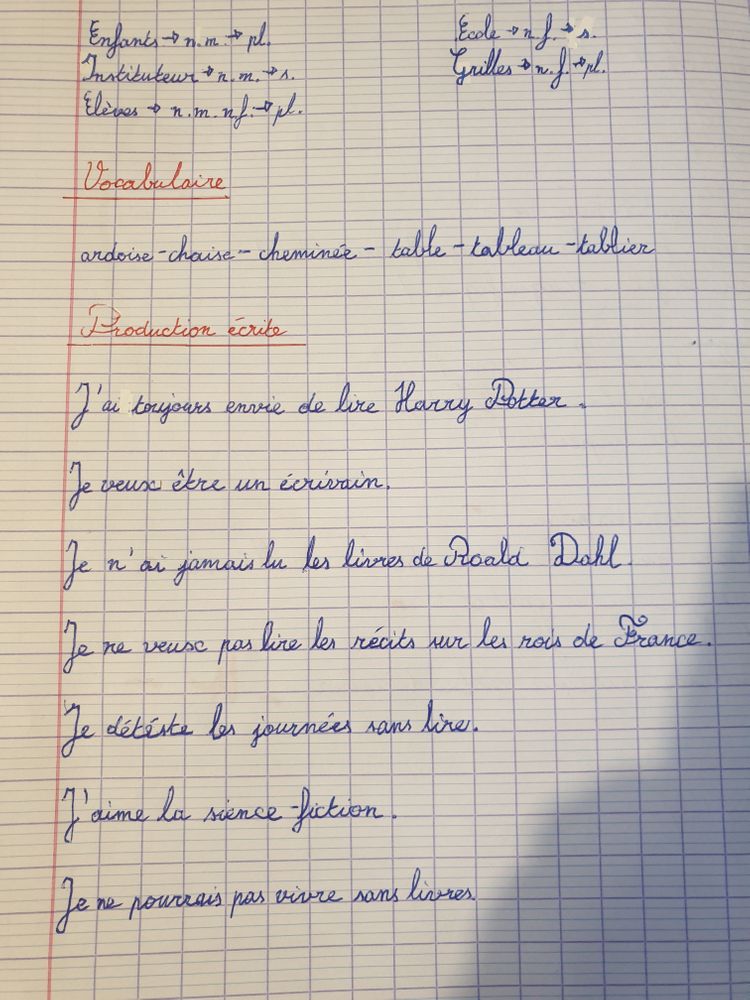 Enfants → n.m. → pl.
Ecole → n.f. → s.
Instituteur → n.m. → s.
Grilles → n.f. → pl.
Elèves → n.m. n.f. → pl.
Vocabulaire
ardoise - chaise - cheminée - table - tableau - tablier
Production écrite
J'ai toujours envie de lire Harry Potter.
Je veux être un écrivain.
Je n'ai jamais lu les livres de Roald Dahl.
Je ne veux pas lire les récits sur les rois de France.
Je détéste les journées sans lire.
J'aime la sience-fiction.
Je ne pourrais pas vivre sans livres.